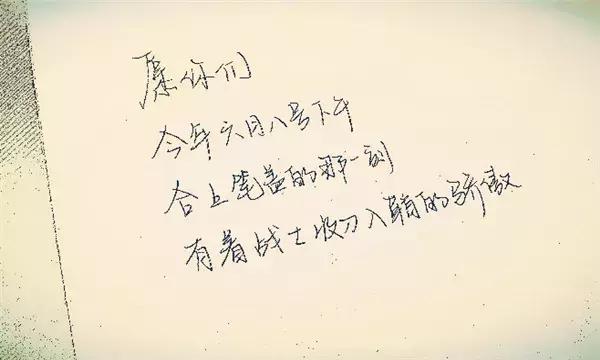 愿你们
今年六月八号下午
合上笔盖的那一刻
有着战士收刀入鞘的骄傲